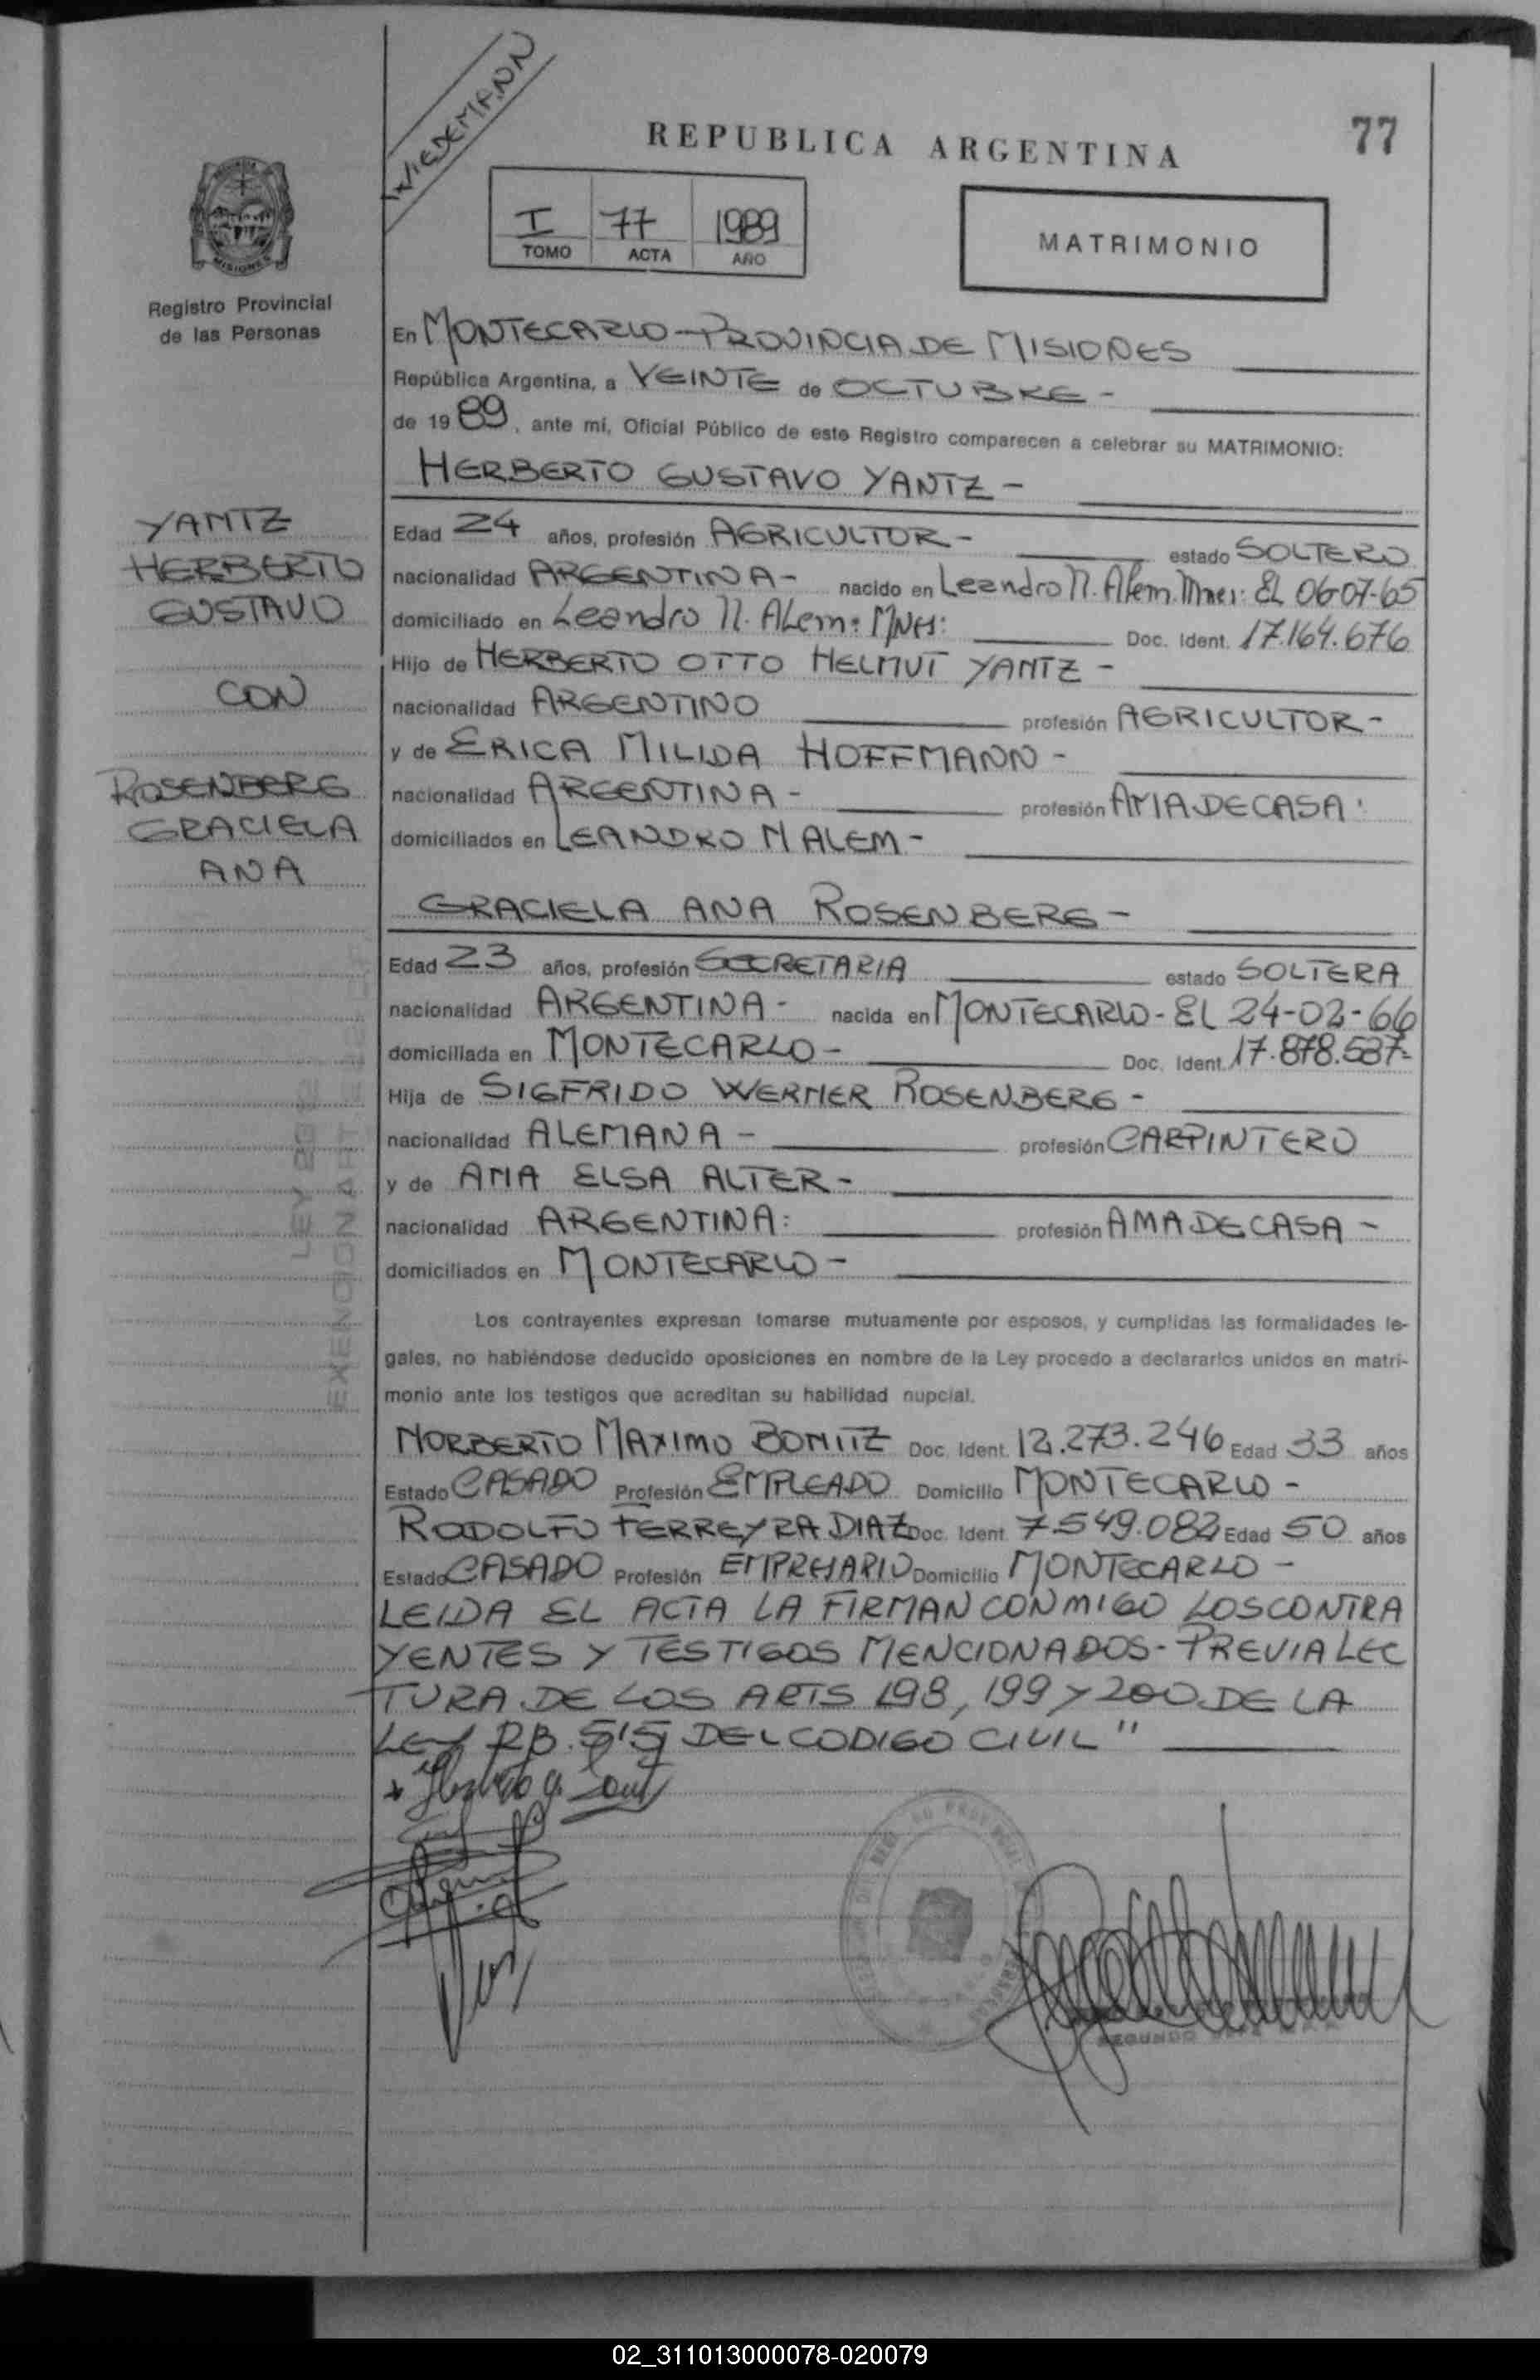 WIEDEMANN
REPUBLICA ARGENTINA
77
I 77 1989
TOMO ACTA AÑO
MATRIMONIO
MISIONES
Registro Provincial
de las Personas
En MONTECARLO - PROVINCIA DE MISIONES
República Argentina, a VEINTE de OCTUBRE -
de 1989, ante mi, Oficial Público de este Registro comparecen a celebrar su MATRIMONIO:
HERBERTO GUSTAVO YANTZ -
YANTZ
HERBERTO
GUSTAVO
CON
ROSENBERG
GRACIELA
ANA
Edad 24 años, profesión AGRICULTOR - estado SOLTERO
nacionalidad ARGENTINA - nacido en Leandro N. Alem. Mnes: EL 06-07-65
domiciliado en Leandro N. ALem: MNES: Doc. Ident. 17.164.676
Hijo de HERBERTO OTTO HELMUT YANTZ -
nacionalidad ARGENTINO profesión AGRICULTOR -
y de ERICA MILIDA HOFFMANN -
nacionalidad ARGENTINA - profesión AMA DE CASA:
domiciliados en LEANDRO N ALEM -
GRACIELA ANA ROSENBERG -
Edad 23 años, profesión SECRETARIA estado SOLTERA
nacionalidad ARGENTINA - nacida en MONTECARLO - EL 24-02-66
domiciliada en MONTECARLO - Doc. Ident. 17.878.537-
Hija de SIGFRIDO WERNER ROSENBERG -
nacionalidad ALEMANA - profesión CARPINTERO
y de ANA ELSA ALTER -
nacionalidad ARGENTINA: profesión AMA DE CASA -
domiciliados en MONTECARLO -
LEY
EXENCION ART
Los contrayentes expresan tomarse mutuamente por esposos, y cumplidas las formalidades le-
gales, no habiéndose deducido oposiciones en nombre de la Ley procedo a declararlos unidos en matri-
monio ante los testigos que acreditan su habilidad nupcial.
NORBERTO MAXIMO BONITZ Doc. Ident. 12.273.246 Edad 33 años
Estado CASADO Profesión EMPLEADO Domicilio MONTECARLO -
RODOLFO FERREYRA DIAZ Doc. Ident. 7.549.082 Edad 50 años
Estado CASADO Profesión EMPRESARIO Domicilio MONTECARLO -
LEIDA EL ACTA LA FIRMAN CONMIGO LOS CONTRA
YENTES Y TESTIGOS MENCIONADOS - PREVIA LEC
TURA DE LOS ARTS 198, 199 Y 200 DE LA
LEY 23.515 DEL CODIGO CIVIL"
SEGUNDO JEFE
02_311013000078-020079